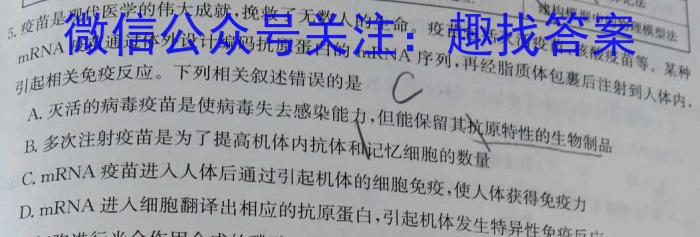 建构模型 理模型法
5. 疫苗是现代医学的伟大成就,挽救了无数人的生命。疫苗 核酸疫苗等。某种
微信公众号关注:趣找答案
mRNA 疫 通过体外设计编码抗原蛋白的 mRNA 序列,再经脂质体包裹后注射到人体内,
引起相关免疫反应。下列相关叙述错误的是 C
A. 灭活的病毒疫苗是使病毒失去感染能力,但能保留其抗原特性的生物制品
B. 多次注射疫苗是为了提高机体内抗体和记忆细胞的数量
C. mRNA 疫苗进入人体后通过引起机体的细胞免疫,使人体获得免疫力
D. mRNA 进入细胞翻译出相应的抗原蛋白,引起机体发生特异性免疫反应